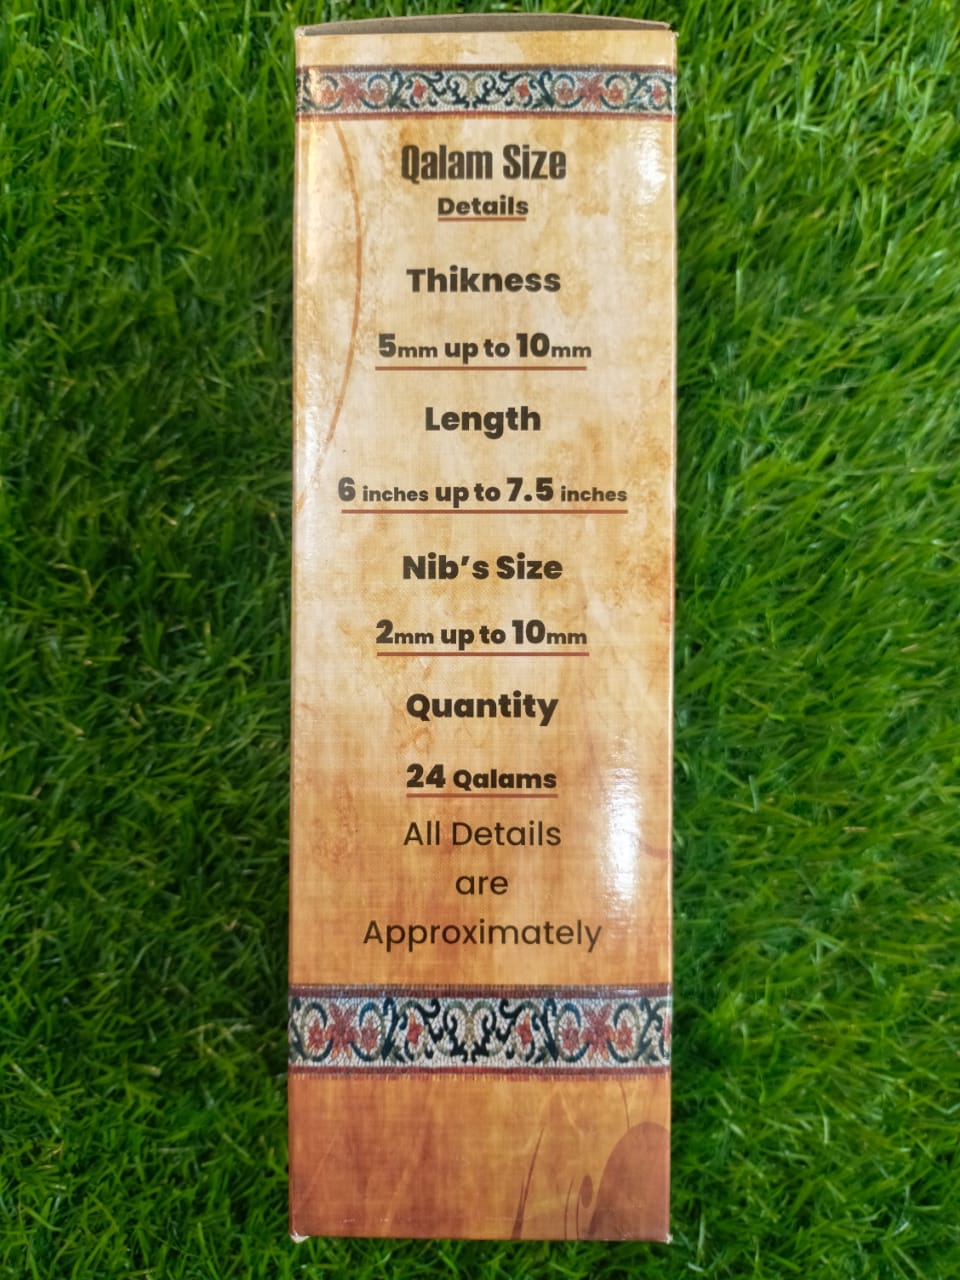 Qalam Size
Details
Thikness
5mm up to 10mm
Length
6 inches up to 7.5 inches
Nib’s Size
2mm up to 10mm
Quantity
24 Qalams
All Details
are
Approximately